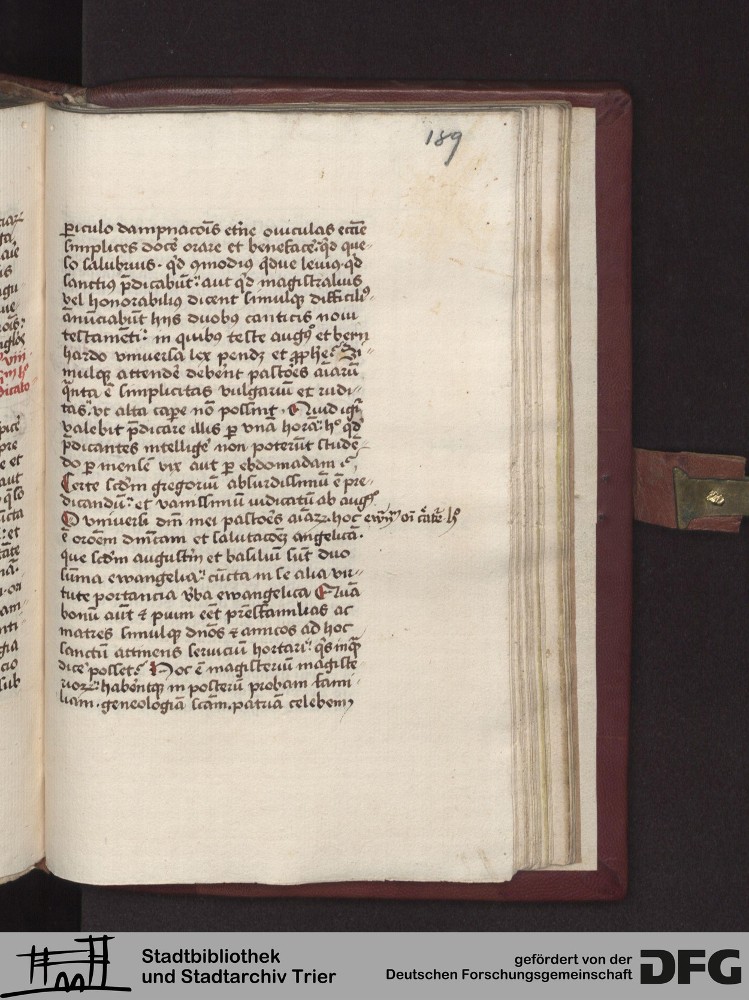 189
ꝑiculo dampnacoīs etͨne ouiculas eccīe
simplices docē orare et beneface qd que-
so salubrius · qd cōmodius qdue leuiꝰ qd
sanctiꝰ p̄dicabūt aut qd magistralius
vel honorabiliꝰ dicent simulqꝫ difficiliꝰ
annūciabūt hijs duobꝫ canticis noui
testamēti in quibꝫ teste augꝰ et bern
hardo vniuersa lex pendꝫ et ꝓph̄e Si-
mulqꝫ attendē debent pastōes aīarū
q̄nta ē simplicitas vulgariū et rudi-
tas vt alta caꝑe nō possint · Quid igͥ
valebit p̄dicare illis ꝑ vnā horā hͦ qd
p̄dicantes intelligē non poterūt studē-
do ꝑ mensē vix aut ꝑ ebdomadam
Certe scd̄m gregoriū absurdissimū ē pre-
dicandū et vanissimū iudicatū ab augꝰ
O vniuersi dn̄i mei pastōes aīaꝝ hoc
ē oroēm dn̄icam et salutacōꝫ angelica ·
que scd̄m augustīn et basiliū sūt duo
sūma ewangelia cūcta in se alia vir-
tute portancia v̄ba ewangelica Quā
bonū aūt ⁊ pium eēt pr̄esfamilias ac
matres simulqꝫ dn̄os ⁊ amicos ad hoc
sanctū attinens seruiciū hortari qͥs inqͣ
dicē posset Hoc ē magisteriū magiste
rioꝝ habentqꝫ in posterū probam fami-
liam · geneologiā scām · patriā celebem
Stadtbibliothek
und Stadtarchiv Trier
gefördert von der
Deutschen Forschungsgemeinschaft
DFG